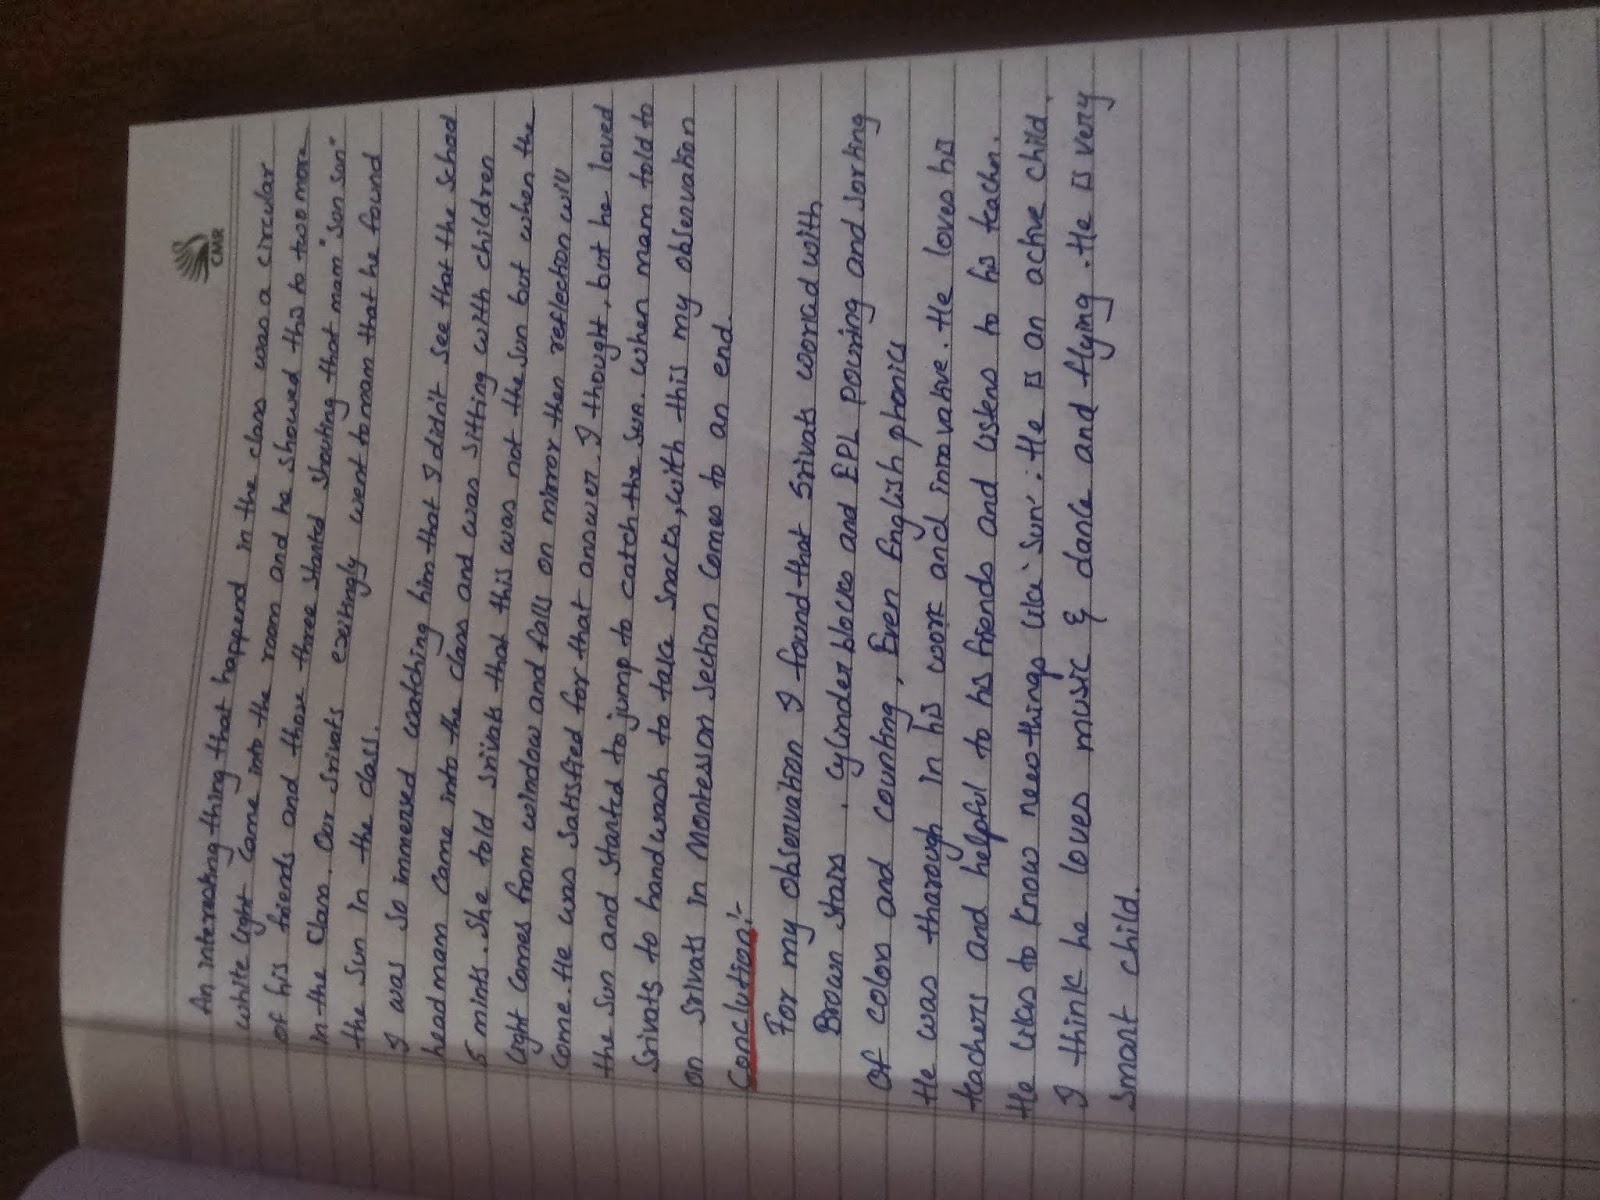 CMR
An interesting thing that happend in the class was a circular
white light came into the room and he showed this to two more
of his friends and those three started shouting that mam "sun sun"
in the class. Our Srivats excitingly went to mam that he found
the sun in the class.
I was so immersed watching him that I didn't see that the school
headmam came into the class and was sitting with children
5 mints. She told Srivats that this was not the sun but when the
light comes from window and falls on mirror then reflection will
come. He was satisfied for that answer I thought, but he loved
the sun and started to jump to catch the sun. when mam told to
Srivats to handwash to take snacks, with this my observation
on Srivats in Montessori section comes to an end.
Conclution:-
For my observation I found that Srivats worked with
Brown stairs, cylinder blocks and EPL pouring and sorting
of colors and counting, Even English phonics
He was thorough in his work and innovative. He loves his
teachers and helpful to his friends and listens to his teacher.
He likes to know new things like 'sun'. He is an active child.
I think he loves music & dance and flying. He is very
smart child.